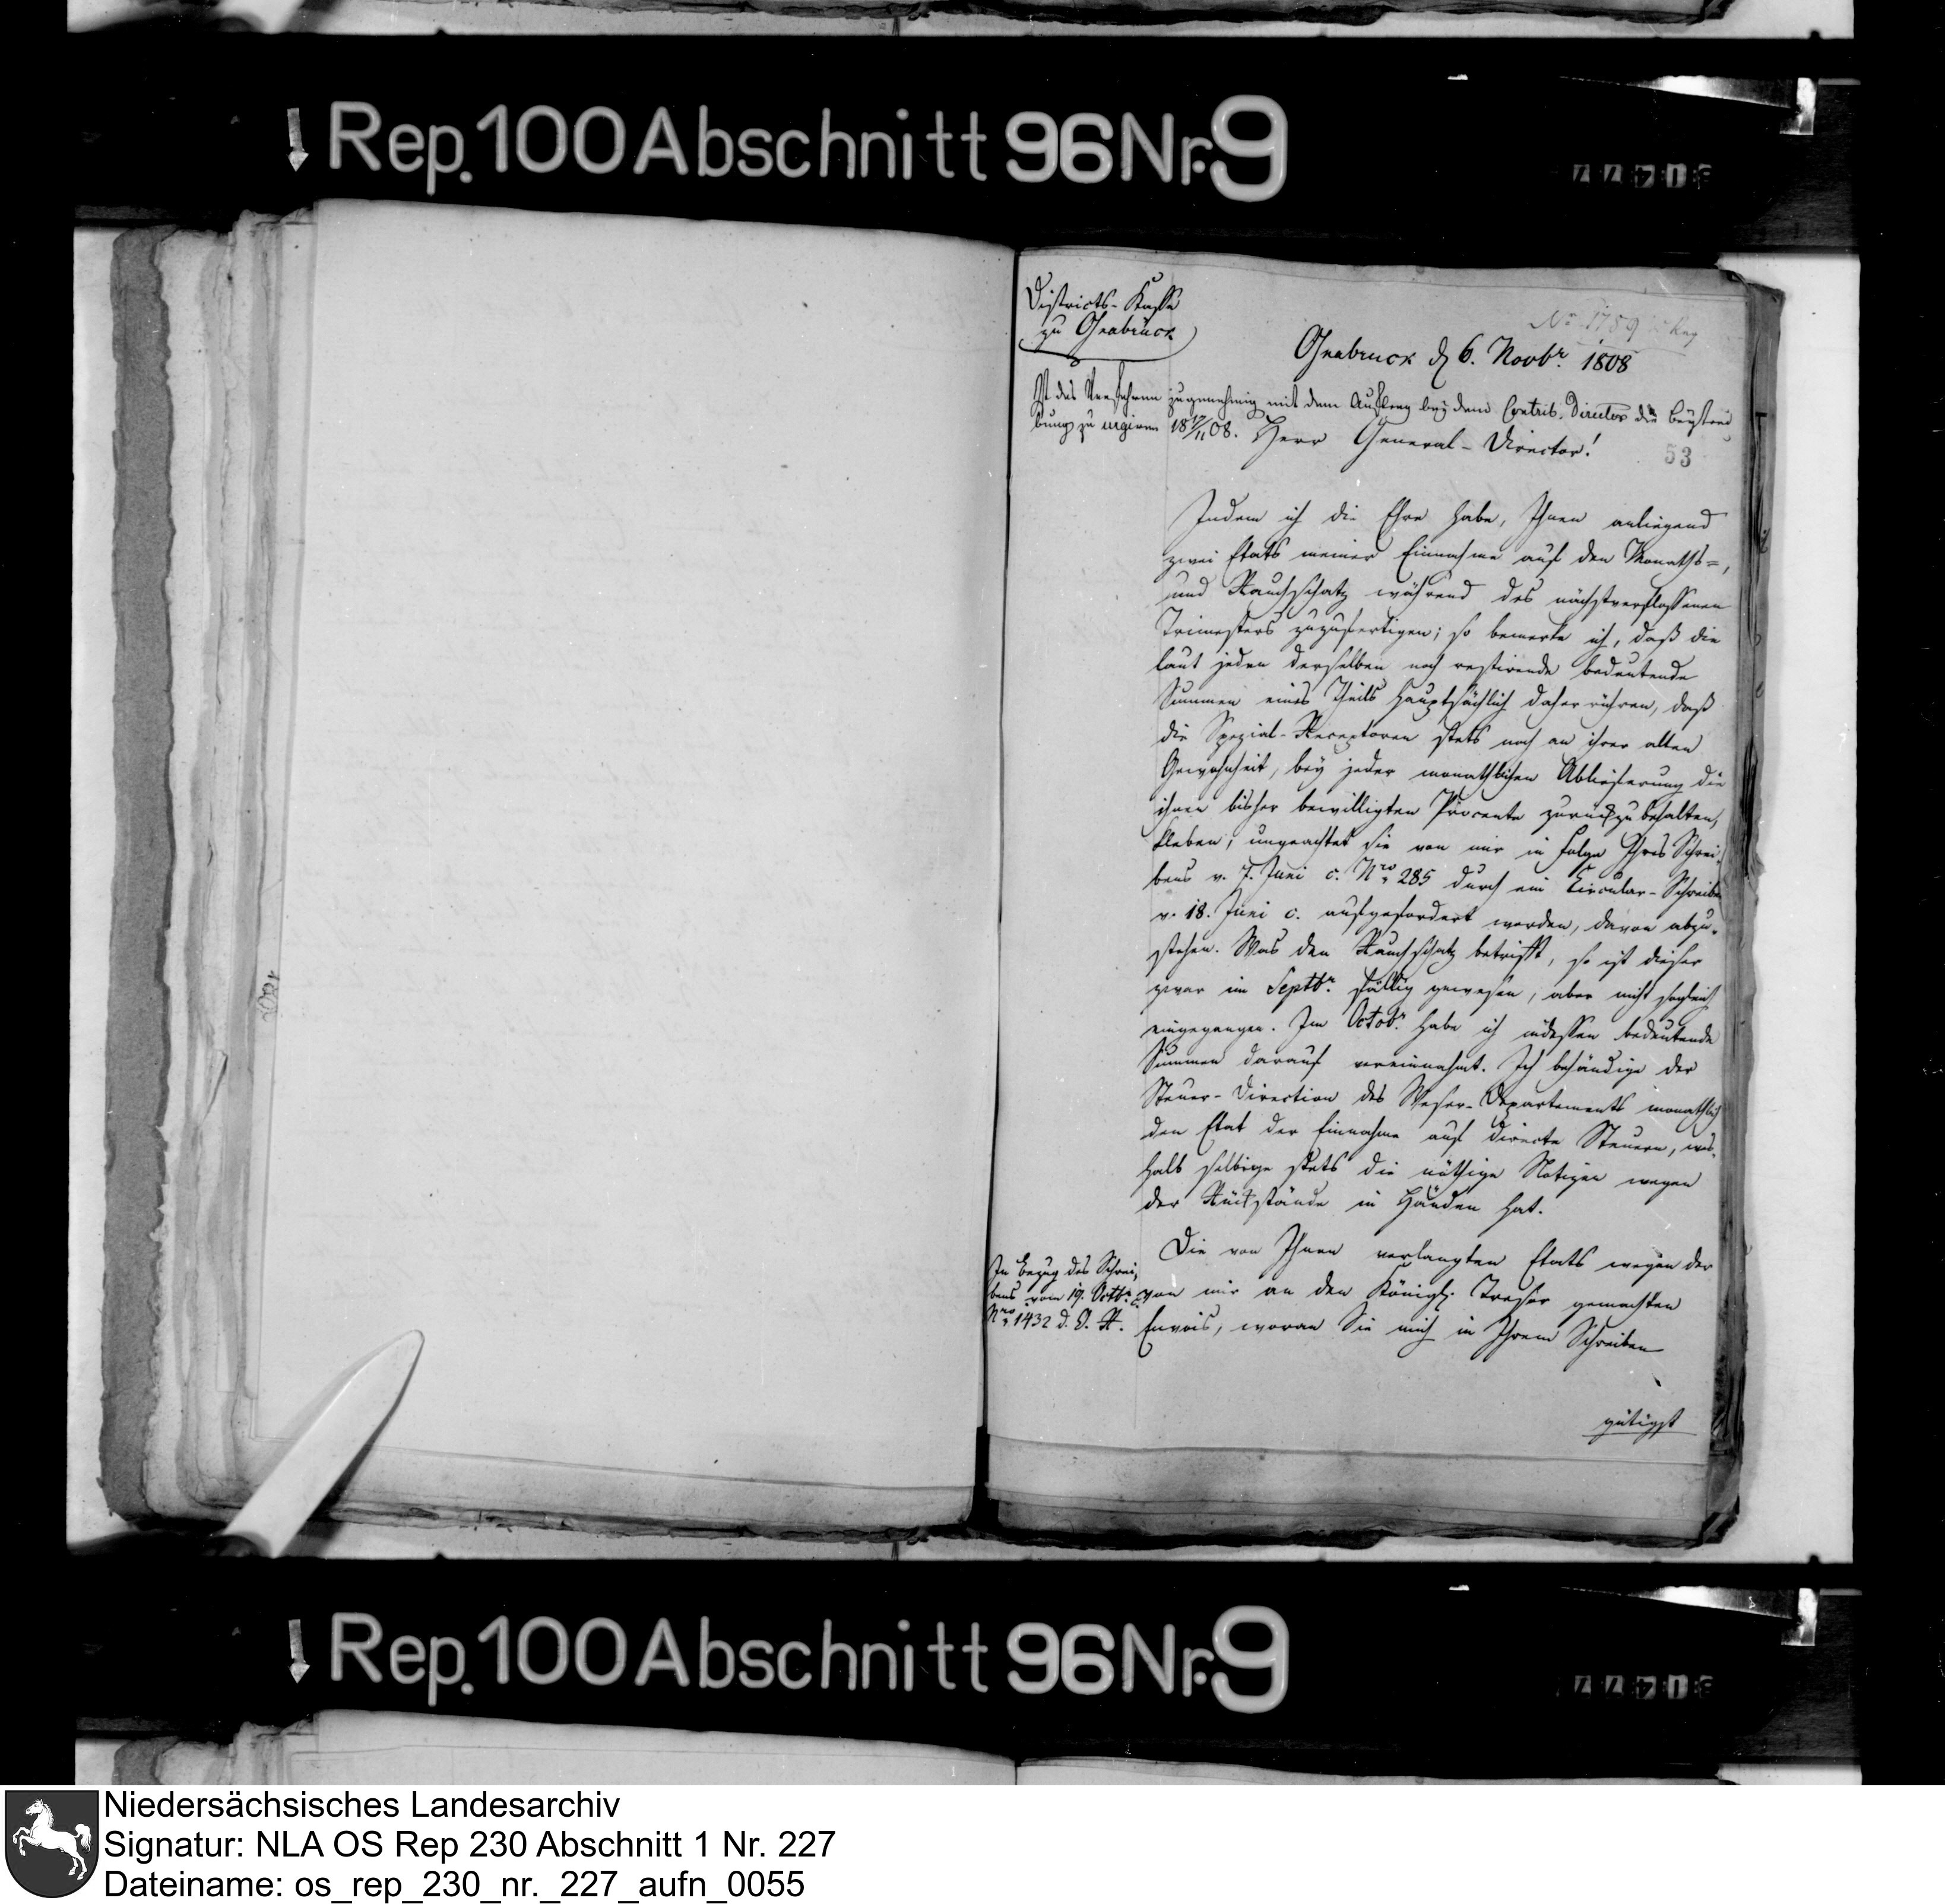 Rep. 100 Abschnitt 96 Nr. 9
Districts-Kasse
zu Osnabrück
No 1789
Osnabruck d 6. Novbr. 1808
Ist das Verfahren zu genehmig mit dem Auftrag bey dem Contrib. Director die Beytrei
bung zu urgiren 18 17/11 08.
Herr General-Director!
53
Indem ich die Ehre habe, Ihnen anliegend
zwei Etats meiner Einnahme auf den Monaths=,
und Rauchschatz während des nächstverflossenen
Trimesters zuzufertigen; so bemerke ich, daß die
laut jeden derselben noch restirende bedeutende
Summen eines Theils hauptsächlich daher rühren, daß
die Spezial-Receptoren stets noch an ihrer alten
Gewohnheit, bey jeder monathlichen Ablieferung die
ihnen bisher bewilligten Procente zurückzubehalten,
kleben; ungeachtet sie von mir in Folge Ihres Schrei-
bens v. 7. Juni c. Nro. 285 durch ein Circular-Schreiben
v. 18. Juni c. aufgefordert worden, davon abzu-
stehen. Was den Rauchschatz betrifft, so ist dieser
zwar im Septbr. fällig gewesen, aber nicht sogleich
eingegangen. Im Octobr. habe ich indessen bedeutende
Summen darauf vereinnahmt. Ich behändige der
Steuer-Direction des Weser-Departements monathlich
den Etat der Einnahme auf directe Steuern, wes-
halb selbige stets die nöthige Notizen wegen
der Rückstände in Händen hat.
Die von Ihnen verlangten Etats wegen der
von mir an den Königl. Tresor gemachten
Envois, woran Sie mich in Ihrem Schreiben
In Bezug des Schrei-
bens vom 19. Octbr. c.
Nro. 1432 d. D. R.
gütigst
Rep. 100 Abschnitt 96 Nr. 9
Niedersächsisches Landesarchiv
Signatur: NLA OS Rep 230 Abschnitt 1 Nr. 227
Dateiname: os_rep_230_nr._227_aufn_0055